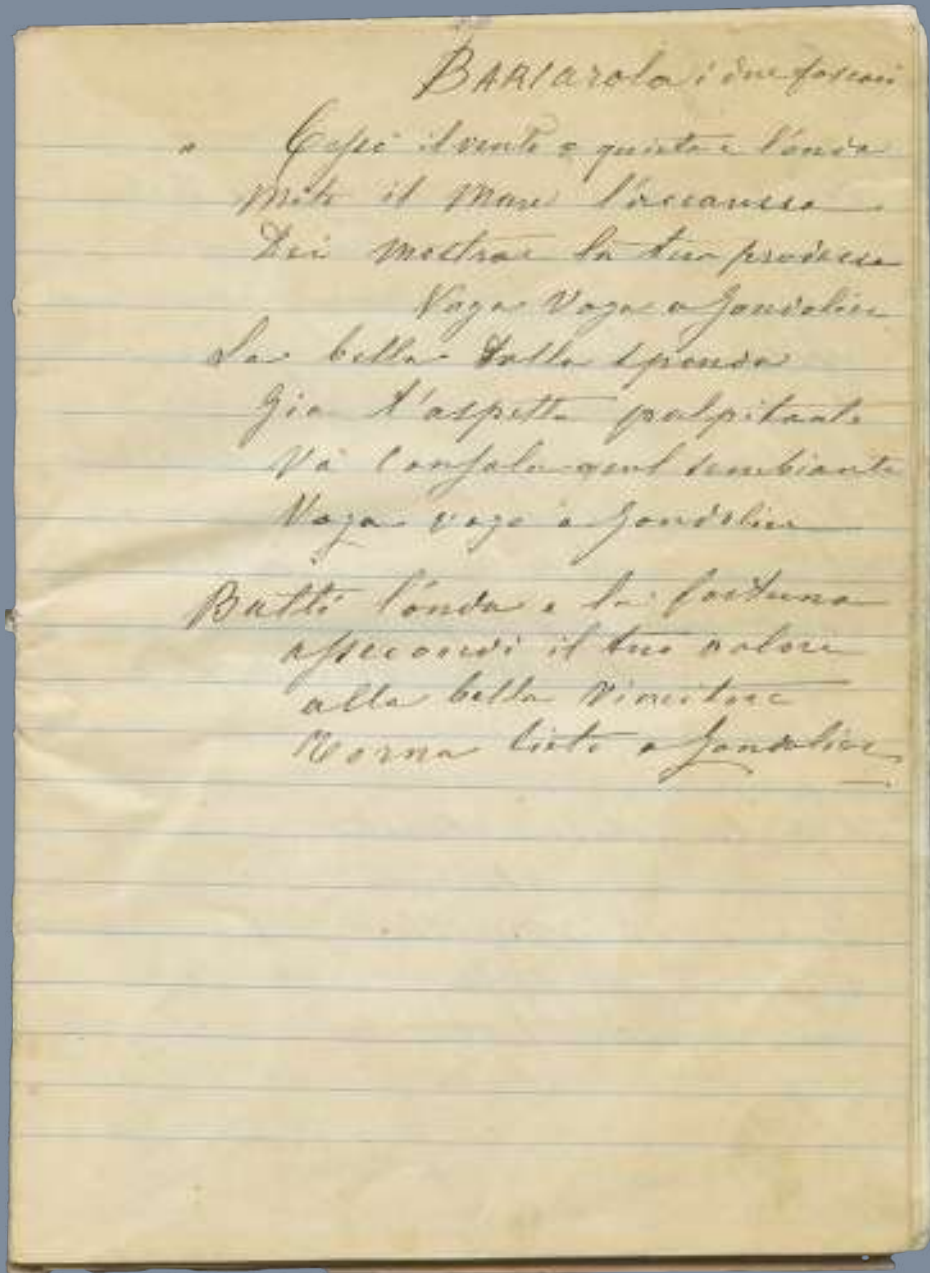 BARCArola i due foscari
" Cessò il vento e quieta è l'onda
Mite il Mare l'accarezza
Dei mostrar la tua prodezza
Voga Voga o gondolier
La bella dalla sponda
Gia t'aspetta palpitante
Và consola quel sembiante
Voga voga o gondolier
Batti l'onda e la fortuna
assecondi il tuo valore
alla bella vincitore
Torna lieto o gondolier